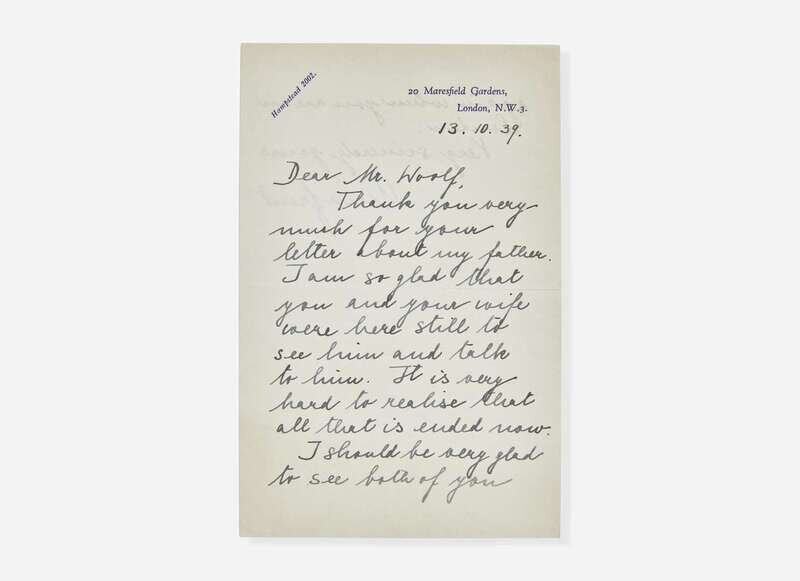 Hampstead 2002.
20 Maresfield Gardens,
London, N.W.3.
13. 10. 39.
Dear Mr. Woolf,
Thank you very
much for your
letter about my father.
I am so glad that
you and your wife
were here still to
see him and talk
to him. It is very
hard to realise that
all that is ended now.
I should be very glad
to see both of you